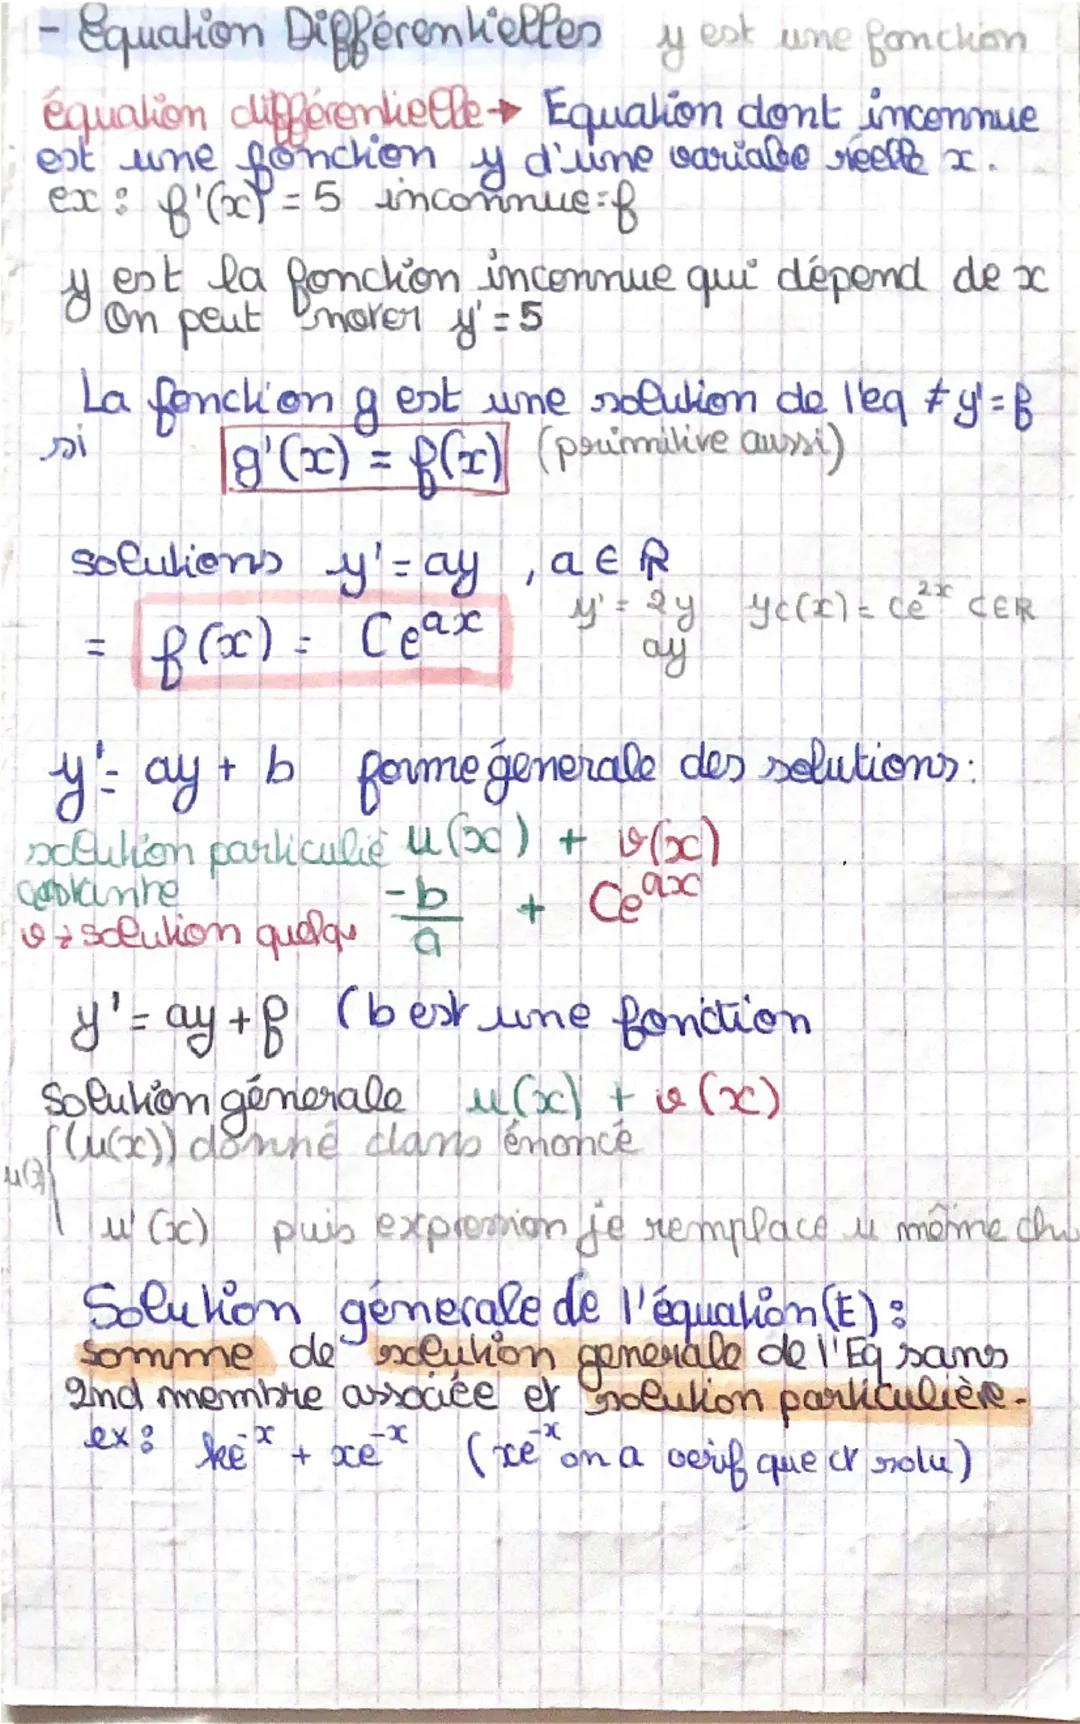 - Equation Différentielles y est une fonction
équation différentielle → Equation dont inconnue
est une fonction y d'une variable réelle x.
ex : f'(x) = 5 inconnue = f
y est la fonction inconnue qui dépend de x
On peut noter y' = 5
La fonction g est une solution de l'eq ≠ y' = f
si g'(x) = f(x) (primitive aussi)
solutions y' = ay , a ∈ R
y' = 2y yc(x) = Ce^2x C∈R
= f(x) = Ce^ax
ay
y' = ay + b forme génerale des solutions :
solution particuliè u(x) + v(x)
constante -b/a + Ce^ax
v → solution quelqu
y' = ay + f (b est une fonction
Solution génerale u(x) + v(x)
(u(x)) donné dans énoncé
u'(x) puis expression je remplace u même
Solution génerale de l'équation (E) :
somme de solution generale de l'Eq sans
2nd membre associée et solution particulière.
ex : ke^-x + xe^-x (xe^-x on a verif que c solu)